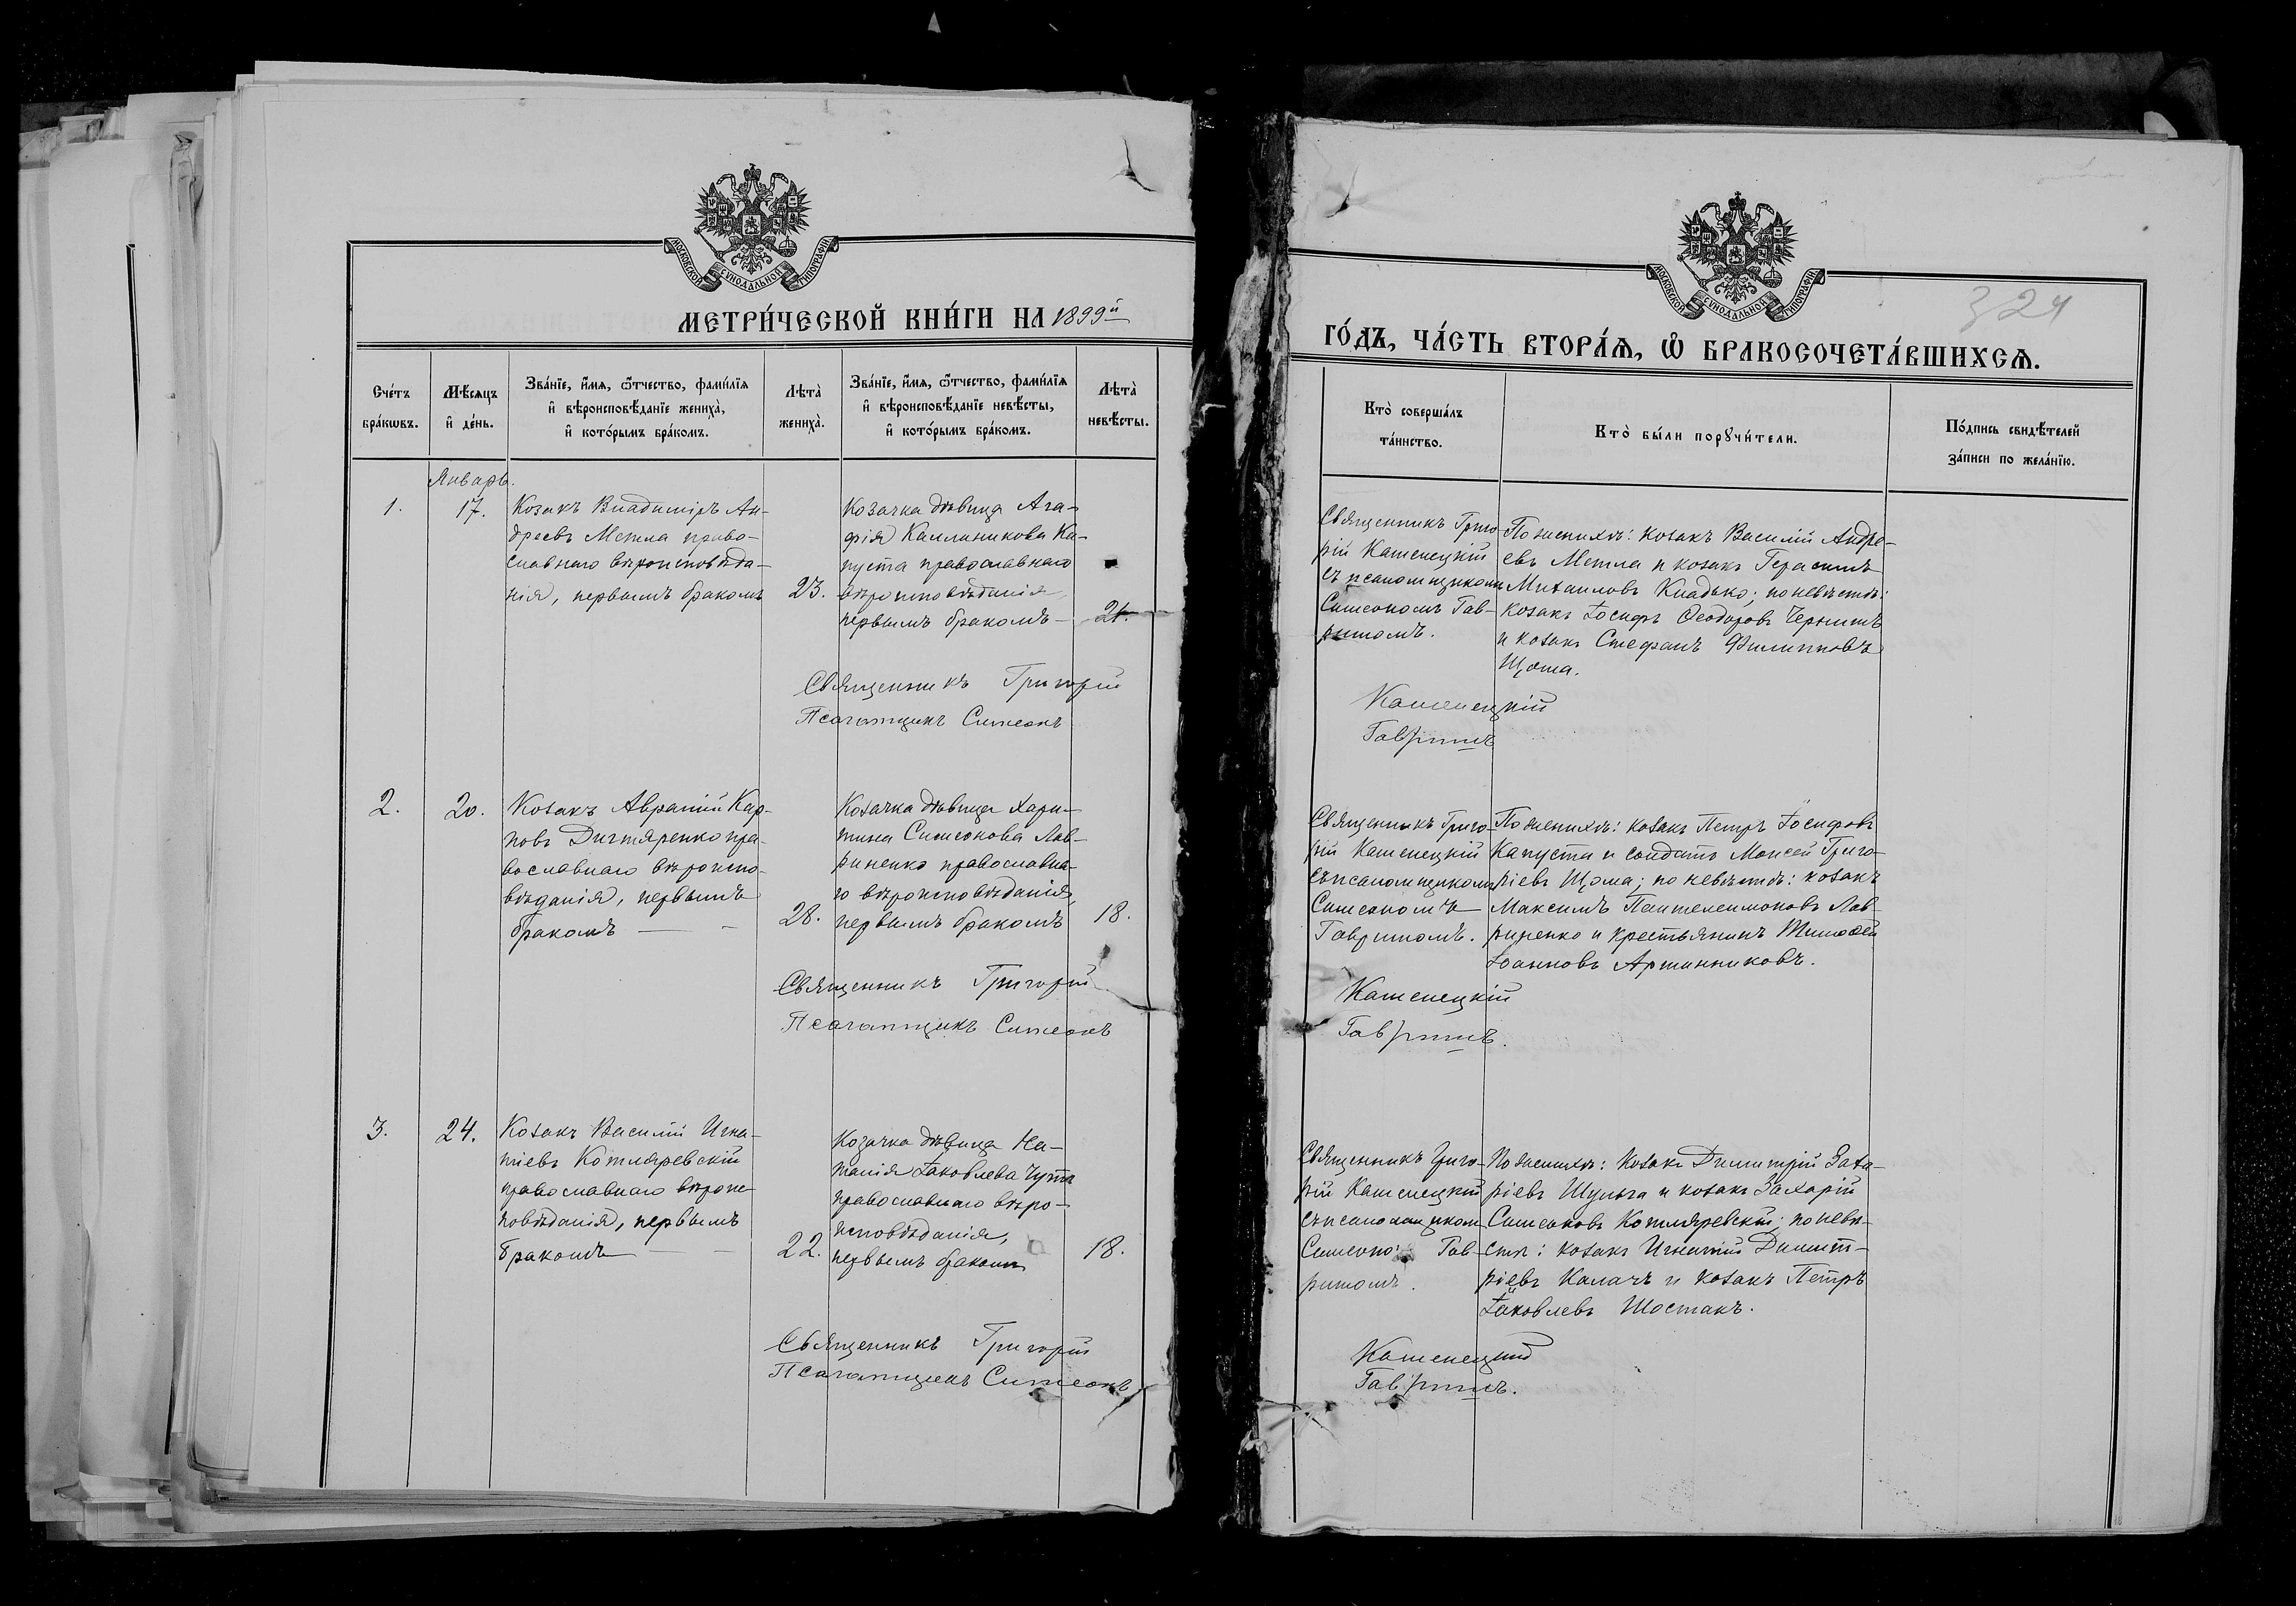 МОСКОВСКОЙ СѴНОДАЛЬНОЙ ТИПОГРАФІИ
МЕТРИ́ЧЕСКОЙ КНИ́ГИ НА 1899й
Сче́тъ бра́кѡвъ.
Мѣ́сяцъ и҆ де́нь.
Зва́нїе, и҆́мѧ, ѻ҆́тчество, фами́лїѧ
и҆ вѣроисповѣ́данїе жениха̀,
и҆ кото́рымъ бра́комъ.
Лѣта̀ жениха̀.
Зва́нїе, и҆́мѧ, ѻ҆́тчество, фами́лїѧ
и҆ вѣроисповѣ́данїе невѣ́сты,
и҆ кото́рымъ бра́комъ.
Лѣта̀ невѣ́сты.
Январь.
1.
17.
Козакъ Владиміръ Ан-
дреевъ Метла право-
славнаго вѣроисповѣда-
нія, первымъ бракомъ
23.
Козачка дѣвица Ага-
фія Каллиникова Ка-
пуста православнаго
вѣроисповѣданія
первымъ бракомъ —
21.
Священникъ Григорій
Псаломщикъ Симеонъ
2.
20.
Козакъ Аврамій Кар-
повъ Дихтяренко пра-
вославнаго вѣроиспо-
вѣданія, первымъ
бракомъ — -
28.
Козачка дѣвица Хари-
тина Симеонова Лав-
риненко православна-
го вѣроисповѣданія,
первымъ бракомъ
18.
Священникъ Григорій
Псаломщикъ Симеонъ
3.
24.
Козакъ Василій Игна-
тіевъ Котляревскій
православнаго вѣроис-
повѣданія, первымъ
бракомъ — —
22.
Козачка дѣвица На-
талія Іаковлева Чута
православнаго вѣро-
исповѣданія,
первымъ бракомъ
18.
Священникъ Григорій
Псаломщикъ Симеонъ
МОСКОВСКОЙ СѴНОДАЛЬНОЙ ТИПОГРАФІИ
324
ГО́ДЪ, ЧА́СТЬ ВТОРА́Ѧ, Ѽ БРАКОСОЧЕТА́ВШИХСѦ.
Кто̀ соверша́лъ
та́инство.
Кто̀ бы́ли порꙋчи́тели.
По́дпись свидѣ́телей
за́писи по жела́нїю.
Священникъ Григо-
рій Каменецкій
съ псаломщикомъ
Симеономъ Гав-
ришомъ.
По женихѣ: козакъ Василій Андре-
евъ Метла и козакъ Герасимъ
Михаиловъ Кладько; по невѣстѣ:
козакъ Іосифъ Ѳеодоровъ Чернышъ
и козакъ Стефанъ Филипповъ
Щома.
Каменецкій
Гавришъ
Священникъ Григо-
рій Каменецкій
съ псаломщикомъ
Симеономъ
Гавришомъ.
По женихѣ: козакъ Петръ Іосифовъ
Капуста и солдатъ Моисей Григо-
ріевъ Щома; по невѣстѣ: козакъ
Максимъ Пантелеимоновъ Лав-
риненко и крестьянинъ Тимоѳей
Іоанновъ Аршинниковъ.
Каменецкій
Гавришъ.
Священникъ Григо-
рій Каменецкій
съ псаломщикомъ
Симеоно Гав-
ришомъ.
По женихѣ: козакъ Димитрій Заха-
ріевъ Шульга и козакъ Захарій
Симеоновъ Котляревскій; по невѣ-
стѣ: козакъ Игнатій Димит-
ріевъ Калачъ и козакъ Петръ
Іаковлевъ Шостакъ.
Каменецкій
Гавришъ.